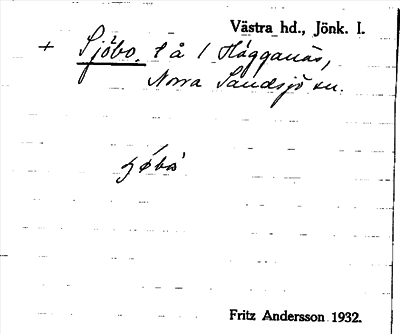 Västra hd., Jönk. l.
+ Sjöbo, t å 1 Hägganäs,
Norra Sandsjö sn.
Fritz Andersson 1932.